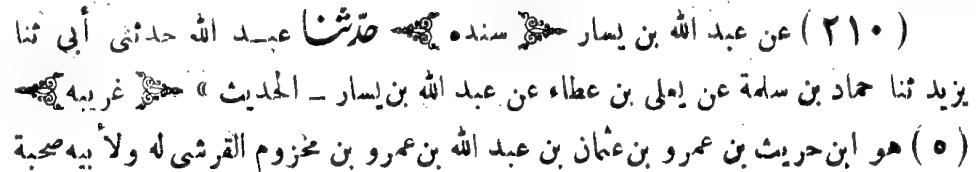 ( ٢١٠ ) عن عبد الله بن يسار ﴿ سنده ﴾ حدّثنا عبد الله حدثنى أبى ثنا
يزيد ثنا حماد بن سلمة عن يعلى بن عطاء عن عبد الله بن يسار ــ الحديث » ﴿ غريبه ﴾
( ٥ ) هو ابن حريث بن عمرو بن عثمان بن عبد الله بن عمرو بن مخزوم القرشى له ولأبيه صحبة